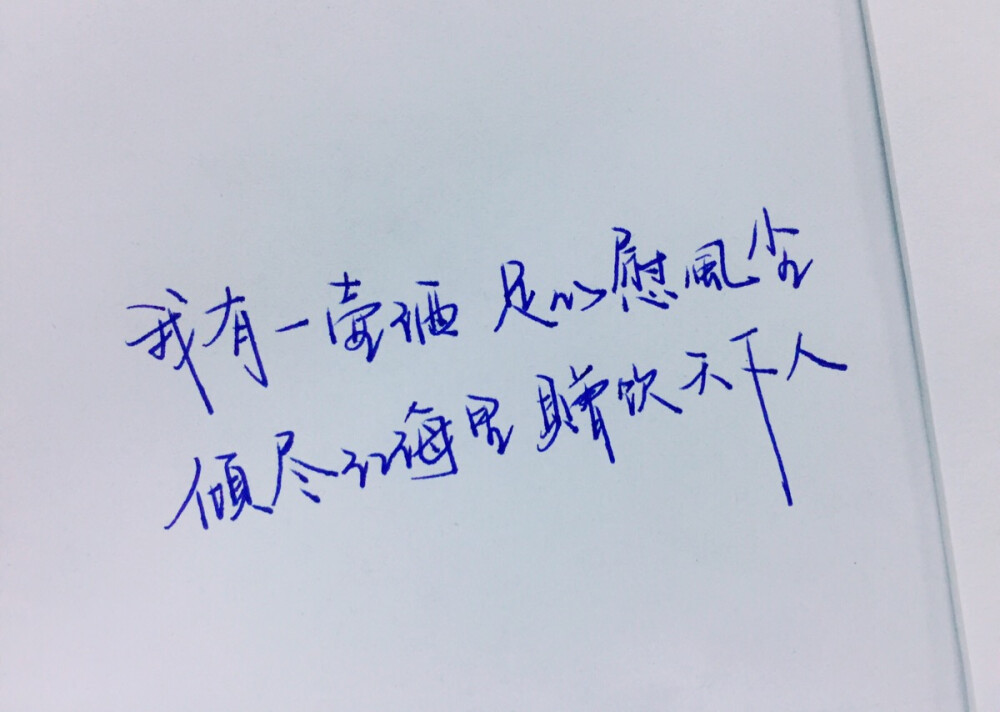 我有一壶酒 足以慰風尘
倾尽江海里 赠饮天下人